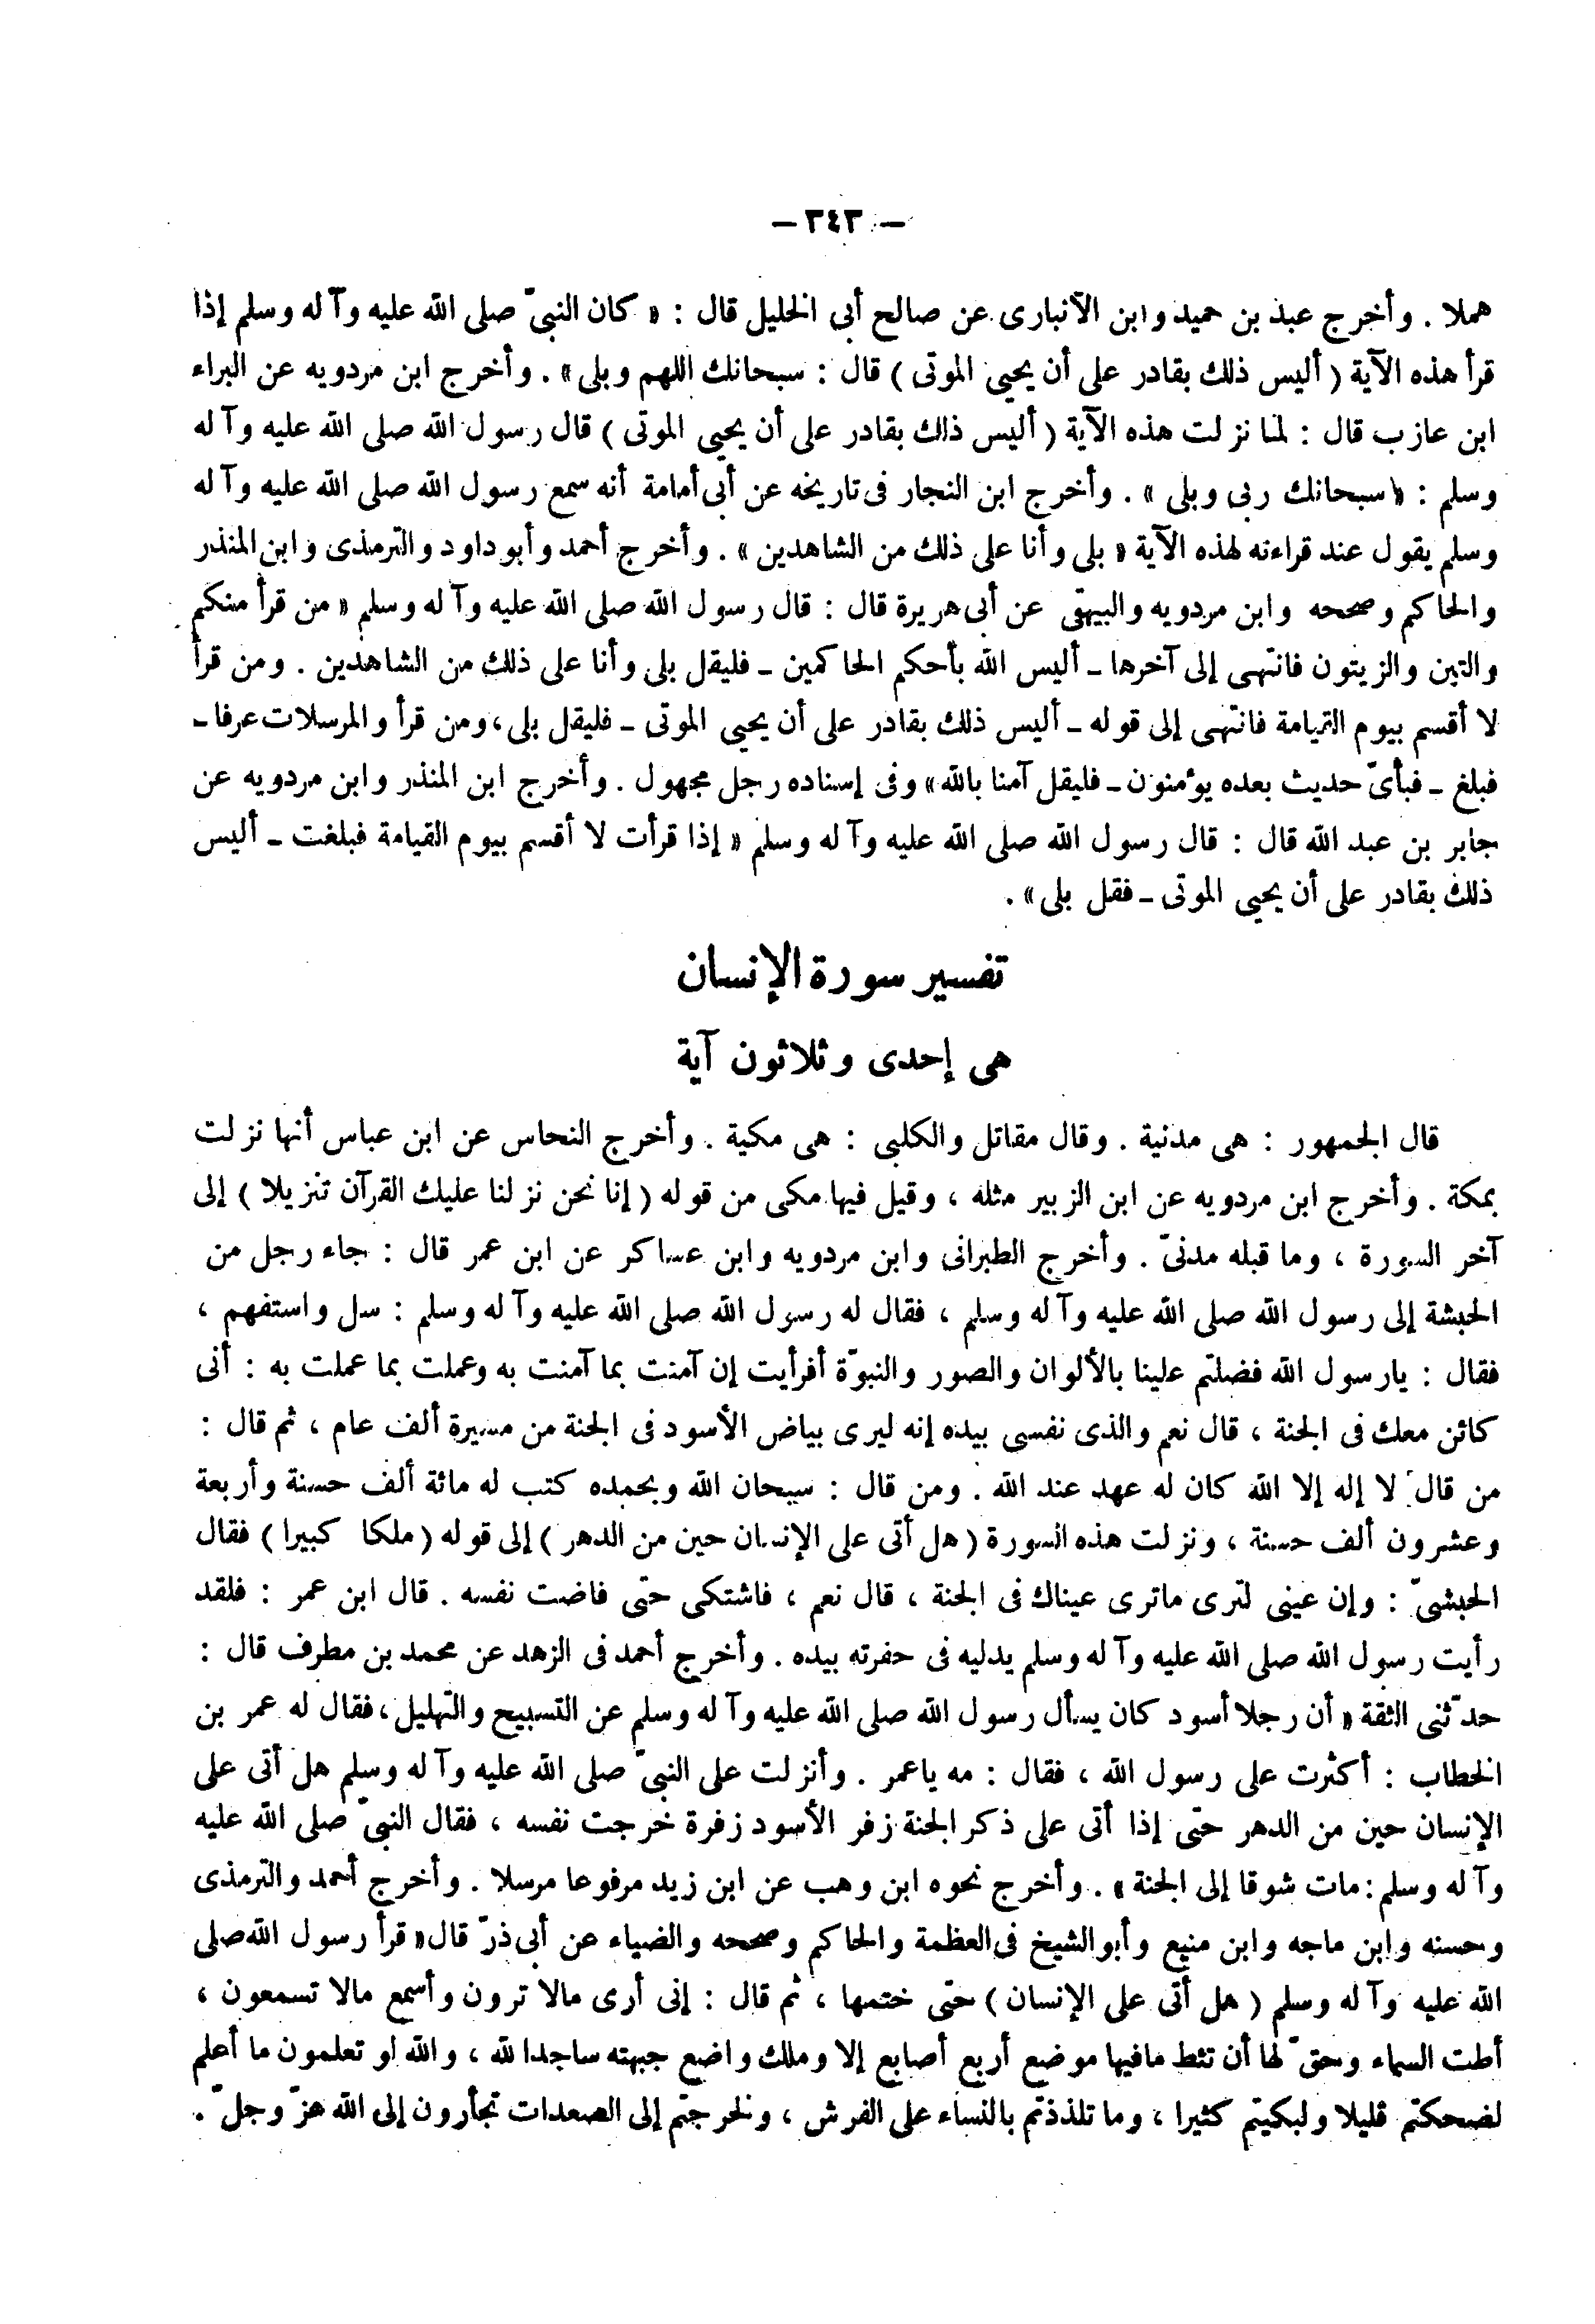 — ٣٤٣ —
هملا . وأخرج عبد بن حميد وابن الأنبارى عن صالح أبي الخليل قال : « كان النبىّ صلى الله عليه وآله وسلم إذا
قرأ هذه الآية ( أليس ذلك بقادر على أن يحيى الموتى ) قال : سبحانك اللهم وبلى » . وأخرج ابن مردويه عن البراء
ابن عازب قال : لما نزلت هذه الآية ( أليس ذلك بقادر على أن يحيى الموتى ) قال رسول الله صلى الله عليه وآله
وسلم : « سبحانك ربى وبلى » . وأخرج ابن النجار فى تاريخه عن أبى أمامة أنه سمع رسول الله صلى الله عليه وآله
وسلم يقول عند قراءته لهذه الآية « بلى وأنا على ذلك من الشاهدين » . وأخرج أحمد وأبو داود والترمذى وابن المنذر
والحاكم وصححه وابن مردويه والبيهقى عن أبى هريرة قال : قال رسول الله صلى الله عليه وآله وسلم « من قرأ منكم
والتين والزيتون فانتهى إلى آخرها ـ أليس الله بأحكم الحاكمين ـ فليقل بلى وأنا على ذلك من الشاهدين . ومن قرأ
لا أقسم بيوم القيامة فانتهى إلى قوله ـ أليس ذلك بقادر على أن يحيى الموتى ـ فليقل بلى ، ومن قرأ والمرسلات عرفا ـ
فبلغ ـ فبأىّ حديث بعده يؤمنون ـ فليقل آمنا بالله » وفى إسناده رجل مجهول . وأخرج ابن المنذر وابن مردويه عن
جابر بن عبد الله قال : قال رسول الله صلى الله عليه وآله وسلم « إذا قرأت لا أقسم بيوم القيامة فبلغت ـ أليس
ذلك بقادر على أن يحيى الموتى ـ فقل بلى » .
تفسير سورة الإنسان
هى إحدى وثلاثون آية
قال الجمهور : هى مدنية . وقال مقاتل والكلبى : هى مكية . وأخرج النحاس عن ابن عباس أنها نزلت
بمكة . وأخرج ابن مردويه عن ابن الزبير مثله ، وقيل فيها مكى من قوله ( إنا نحن نزلنا عليك القرآن تنزيلا ) إلى
آخر السورة ، وما قبله مدنىّ . وأخرج الطبرانى وابن مردويه وابن عساكر عن ابن عمر قال : جاء رجل من
الحبشة إلى رسول الله صلى الله عليه وآله وسلم ، فقال له رسول الله صلى الله عليه وآله وسلم : سل واستفهم ،
فقال : يارسول الله فضلتم علينا بالألوان والصور والنبوّة أفرأيت إن آمنت بما آمنت به وعملت بما عملت به : أنى
كائن معك فى الجنة ، قال نعم والذى نفسى بيده إنه ليرى بياض الأسود فى الجنة من مسيرة ألف عام ، ثم قال :
من قال لا إله إلا الله كان له عهد عند الله . ومن قال : سبحان الله وبحمده كتب له مائة ألف حسنة وأربعة
وعشرون ألف حسنة ، ونزلت هذه السورة ( هل أتى على الإنسان حين من الدهر ) إلى قوله ( ملكا كبيرا ) فقال
الحبشىّ : وإن عينى لترى ماترى عيناك فى الجنة ، قال نعم ، فاشتكى حتى فاضت نفسه . قال ابن عمر : فلقد
رأيت رسول الله صلى الله عليه وآله وسلم يدليه فى حفرته بيده . وأخرج أحمد فى الزهد عن محمد بن مطرف قال :
حدّثنى الثقة « أن رجلا أسود كان يسأل رسول الله صلى الله عليه وآله وسلم عن التسبيح والتهليل ، فقال له عمر بن
الخطاب : أكثرت على رسول الله ، فقال : مه ياعمر . وأنزلت على النبىّ صلى الله عليه وآله وسلم هل أتى على
الإنسان حين من الدهر حتى إذا أتى على ذكر الجنة زفر الأسود زفرة خرجت نفسه ، فقال النبىّ صلى الله عليه
وآله وسلم : مات شوقا إلى الجنة » . وأخرج نحوه ابن وهب عن ابن زيد مرفوعا مرسلا . وأخرج أحمد والترمذى
وحسنه وابن ماجه وابن منيع وأبو الشيخ فى العظمة والحاكم وصححه والضياء عن أبى ذرّ قال « قرأ رسول الله صلى
الله عليه وآله وسلم ( هل أتى على الإنسان ) حتى ختمها ، ثم قال : إنى أرى مالا ترون وأسمع مالا تسمعون ،
أطت السماء وحقّ لها أن تئط مافيها موضع أربع أصابع إلا وملك واضع جبهته ساجدا لله ، والله لو تعلمون ما أعلم
لضحكتم قليلا ولبكيتم كثيرا ، وما تلذذتم بالنساء على الفرش ، ولخرجتم إلى الصعدات تجأرون إلى الله عزّ وجلّ .